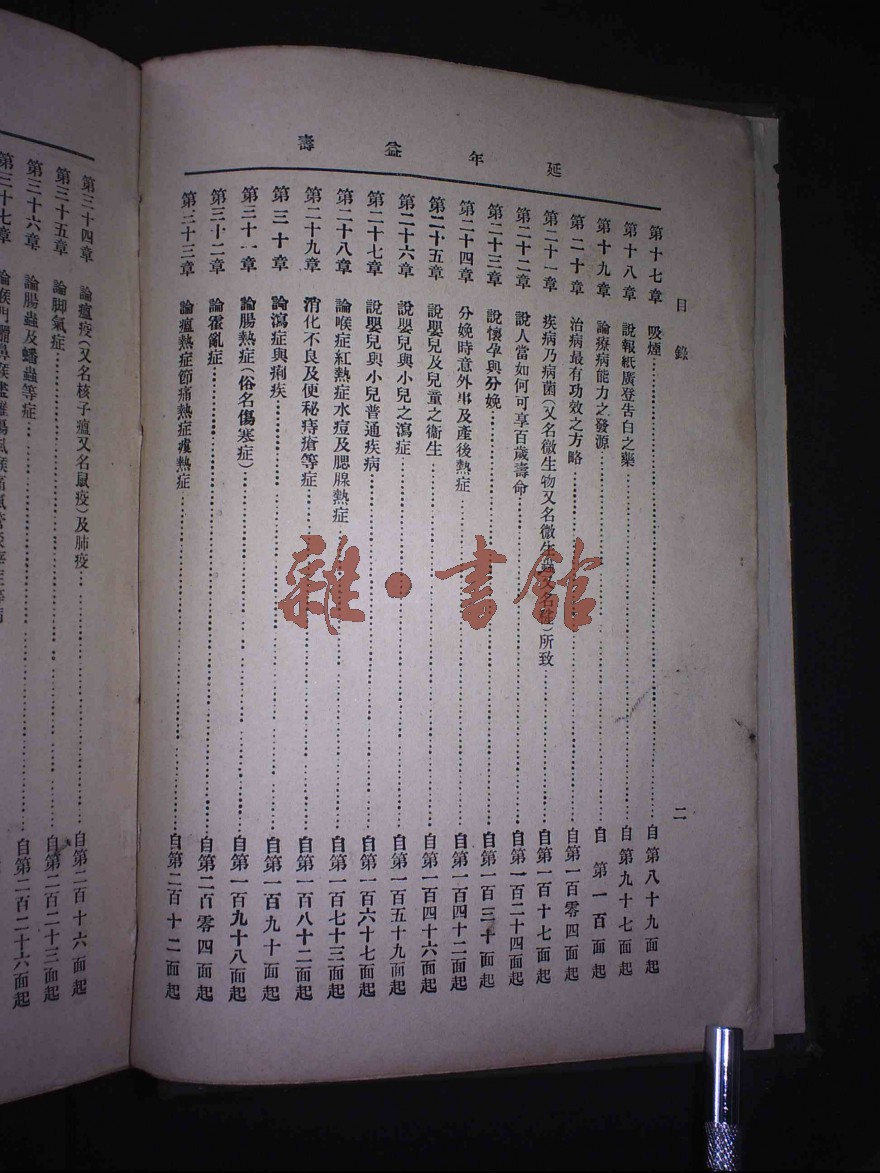 延年益壽
目錄
二
第十七章 吸煙……自第八十九面起
第十八章 說報紙廣登告白之藥……自第九十七面起
第十九章 論療病能力之發源……自第一百面起
第二十章 治病最有功效之方略……自第一百零四面起
第二十一章 疾病乃病菌(又名微生物又名微生 又名 )所致……自第一百十七面起
第二十二章 說人當如何可享百歲壽命……自第一百二十四面起
第二十三章 說懷孕與分娩……自第一百三十面起
第二十四章 分娩時意外事及產後熱症……自第一百四十二面起
第二十五章 說嬰兒及兒童之衞生……自第一百四十六面起
第二十六章 說嬰兒與小兒之瀉症……自第一百五十九面起
第二十七章 說嬰兒與小兒普通疾病……自第一百六十七面起
第二十八章 論喉症紅熱症水痘及腮腺熱症……自第一百七十三面起
第二十九章 消化不良及便秘痔瘡等症……自第一百八十二面起
第三十章 論瀉症與痢疾……自第一百九十面起
第三十一章 論腸熱症(俗名傷寒症)……自第一百九十八面起
第三十二章 論霍亂症……自第二百零四面起
第三十三章 論瘟熱症節痛熱症瘧熱症……自第二百十二面起
第三十四章 論瘟疫(又名核子瘟又名鼠疫)及肺疫……自第二百十六面起
第三十五章 論脚氣症……自第二百二十三面起
第三十六章 論腸蟲及蟠蟲等症……自第二百二十六面起
第三十七章
雜·書館